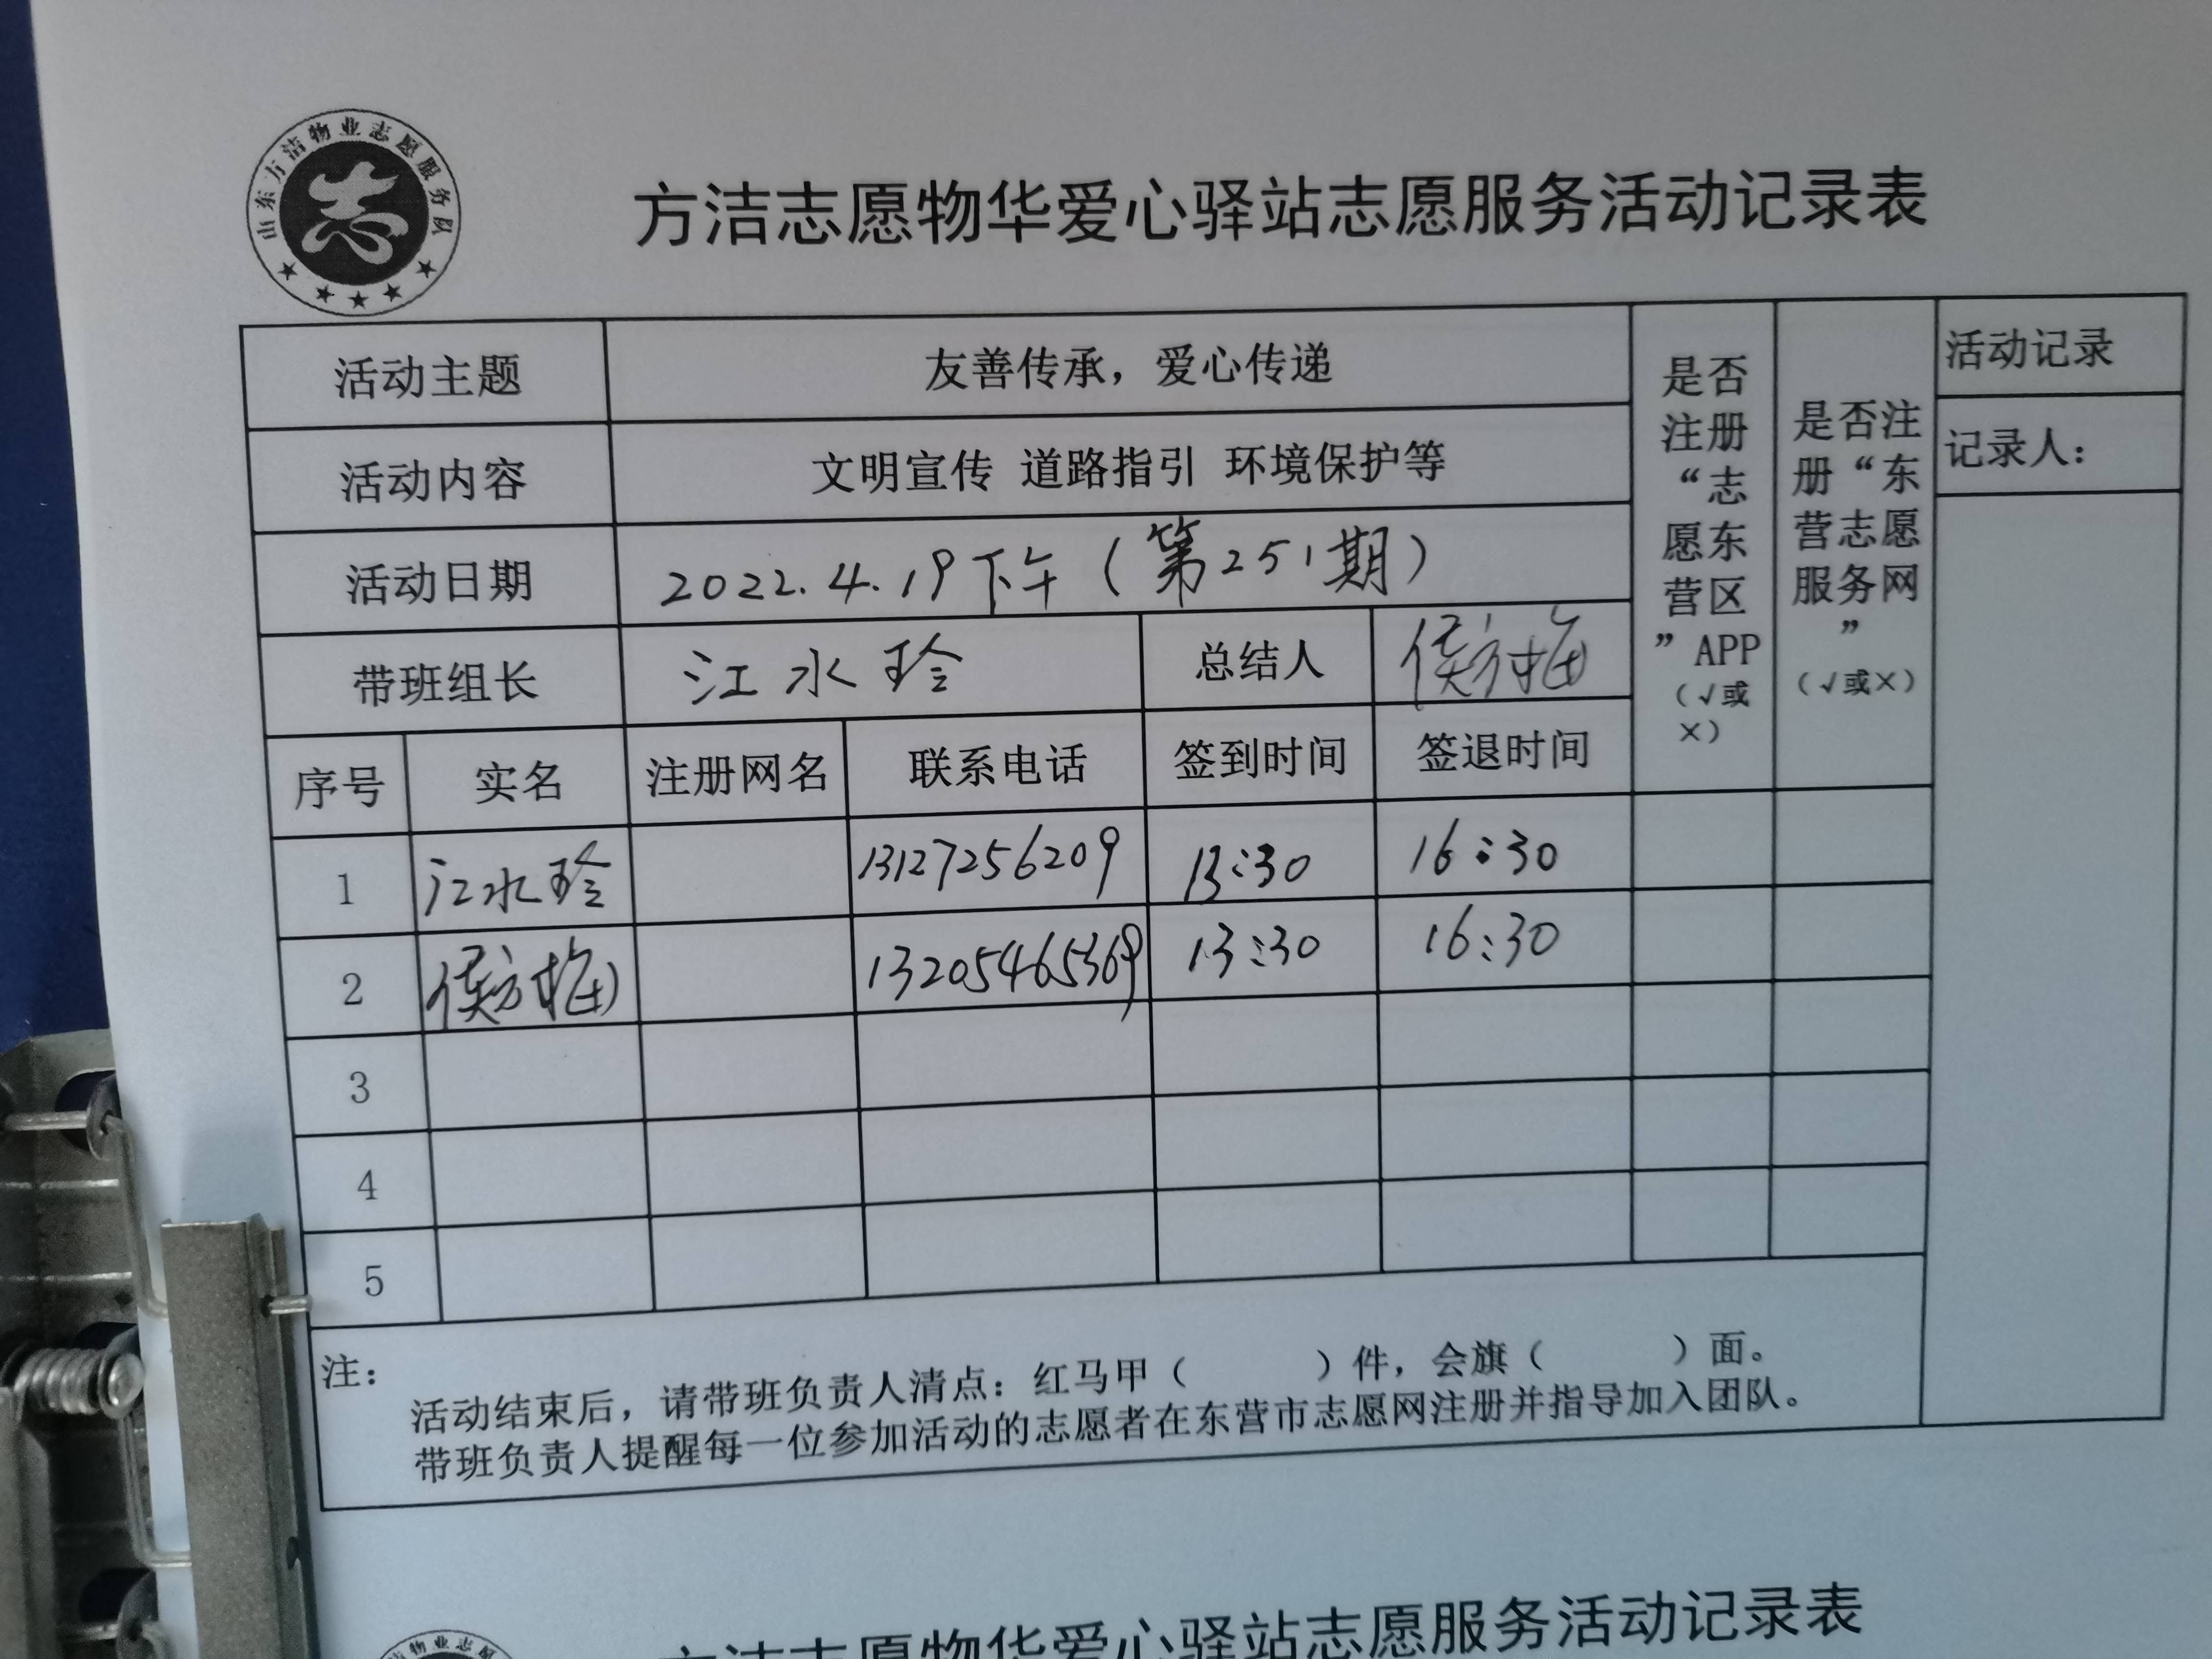 山东方洁物业志愿服务队
志
方洁志愿物华爱心驿站志愿服务活动记录表
活动主题 友善传承，爱心传递
活动内容 文明宣传 道路指引 环境保护等
活动日期 2022.4.19下午（第251期）
带班组长 江水玲 总结人 侯方梅
是否
注册
“志
愿东
营区
”APP
（√或
×）
是否注
册“东
营志愿
服务网
”
（√或×）
活动记录
记录人：
序号 实名 注册网名 联系电话 签到时间 签退时间
1 江水玲 13127256209 13:30 16:30
2 侯方梅 13205465369 13:30 16:30
3
4
5
注：
活动结束后，请带班负责人清点：红马甲（ ）件，会旗（ ）面。
带班负责人提醒每一位参加活动的志愿者在东营市志愿网注册并指导加入团队。
洁物业志愿
方洁志愿物华爱心驿站志愿服务活动记录表